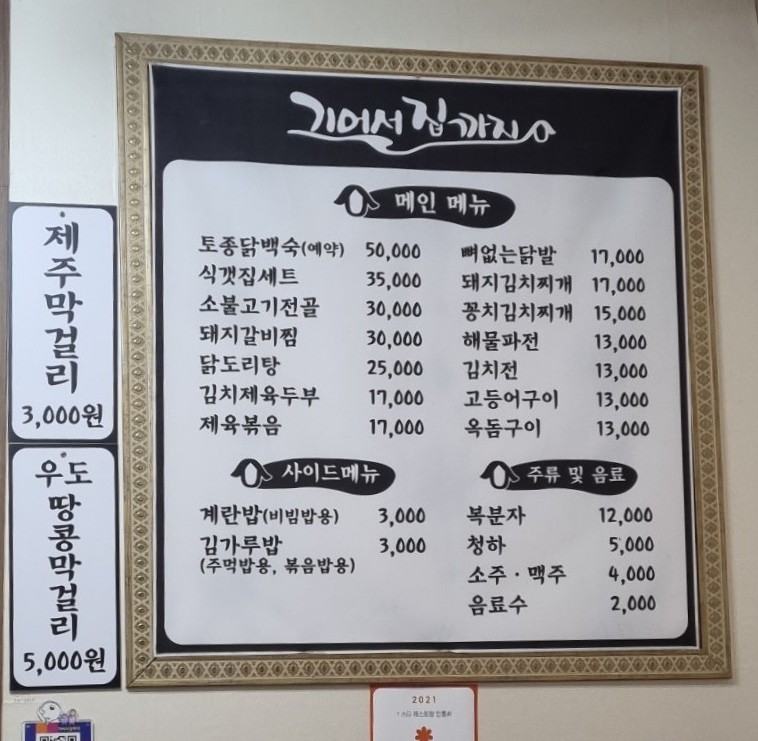 기어서 집까지
메인 메뉴
토종닭백숙(예약) 50,000
식갯집세트 35,000
소불고기전골 30,000
돼지갈비찜 30,000
닭도리탕 25,000
김치제육두부 17,000
제육볶음 17,000
뼈없는닭발 17,000
돼지김치찌개 17,000
꽁치김치찌개 15,000
해물파전 13,000
김치전 13,000
고등어구이 13,000
옥돔구이 13,000
사이드메뉴
계란밥(비빔밥용) 3,000
김가루밥 3,000
(주먹밥용, 볶음밥용)
주류 및 음료
복분자 12,000
청하 5,000
소주 · 맥주 4,000
음료수 2,000
제주막걸리
3,000원
우도
땅콩막걸리
5,000원
2021